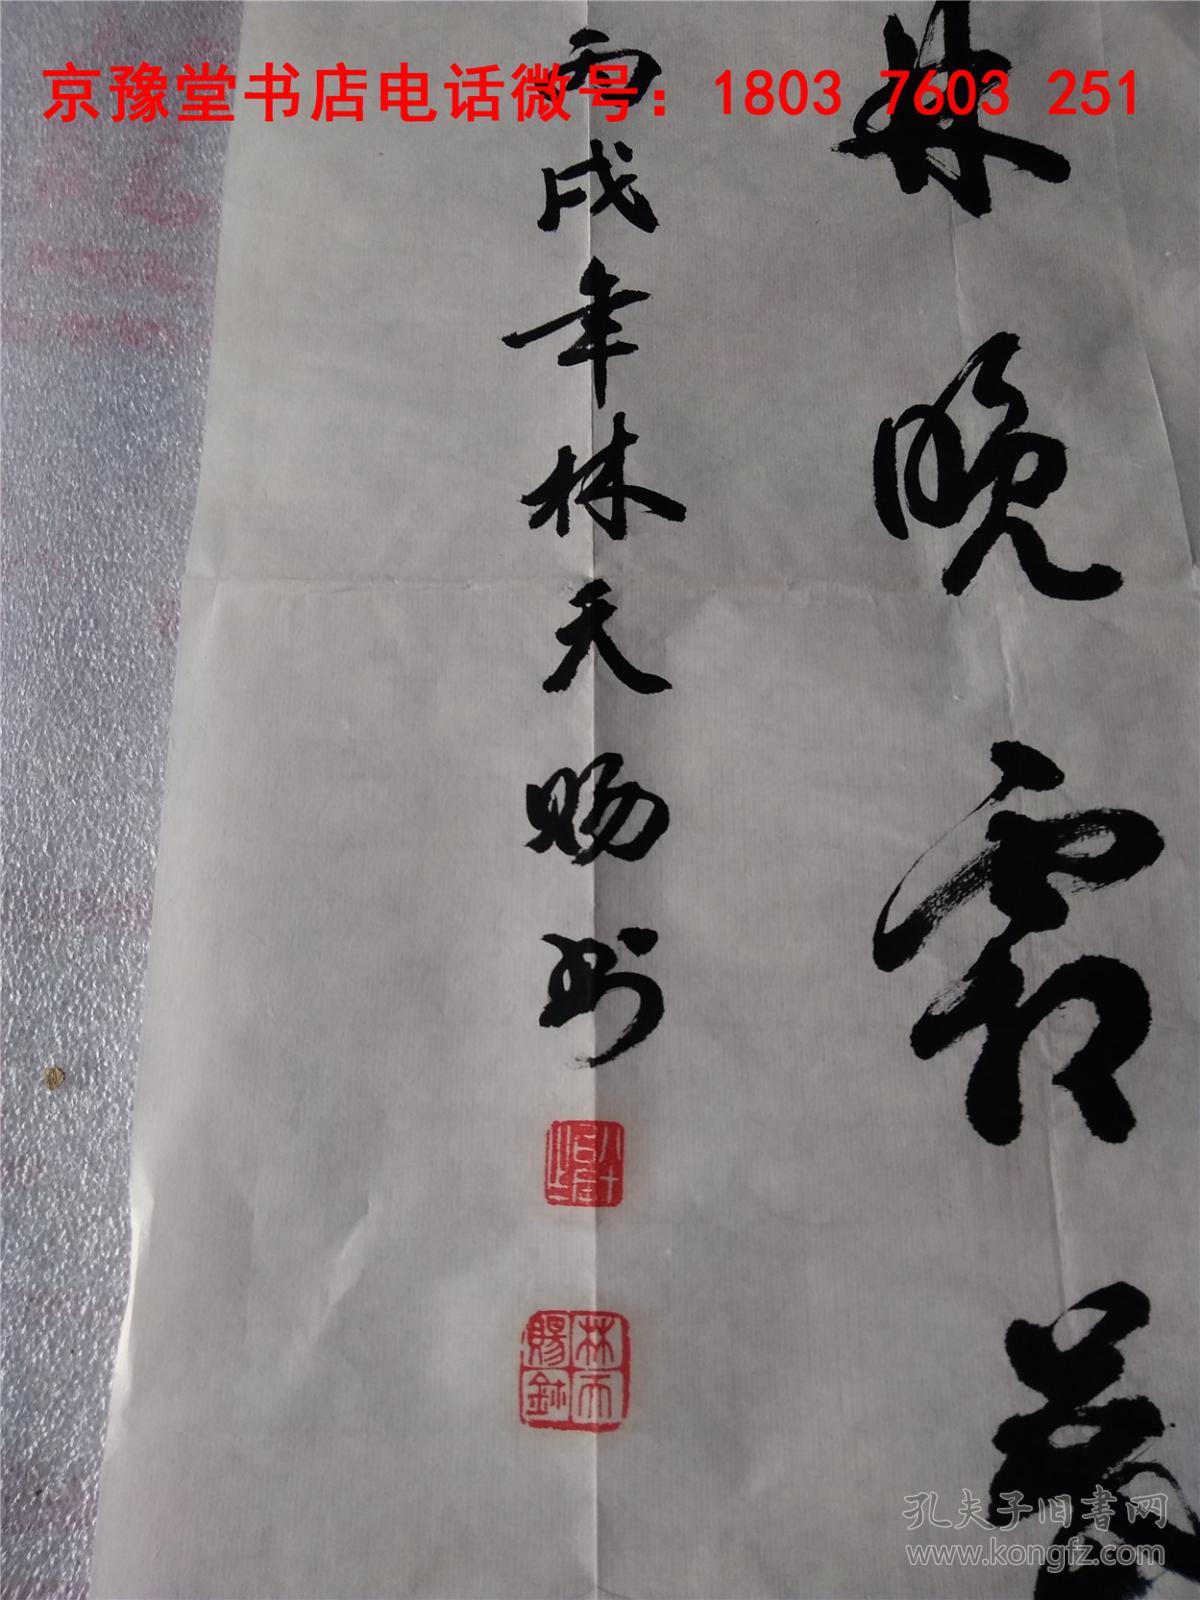 京豫堂书店电话微号：1803 7603 251
林晚霜葉
丙戌年林天赐书
林天賜鉥
孔夫子旧书网
www.kongfz.com